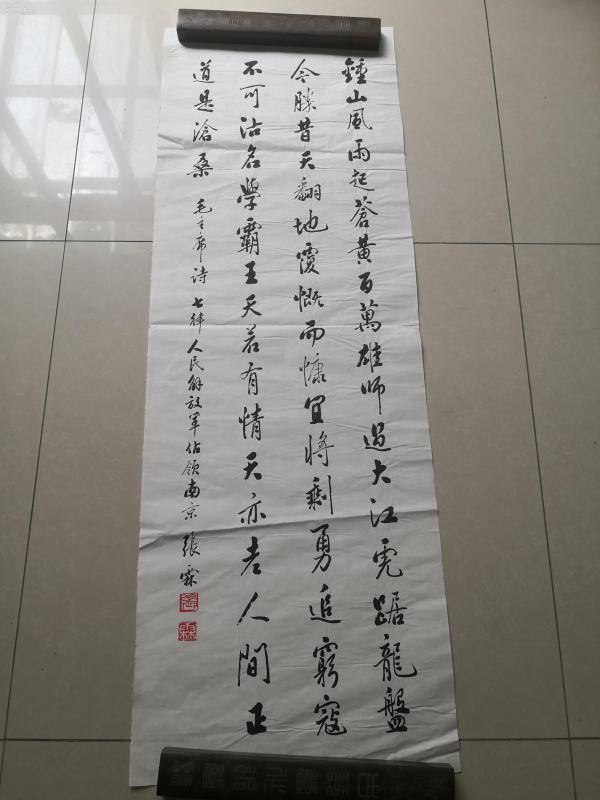 鍾山風雨起蒼黃百萬雄師過大江虎踞龍盤
今勝昔天翻地覆慨而慷宜將剩勇追窮寇
不可沽名學霸王天若有情天亦老人間正
道是滄桑 毛主席诗 七律 人民解放军佔领南京 張霖